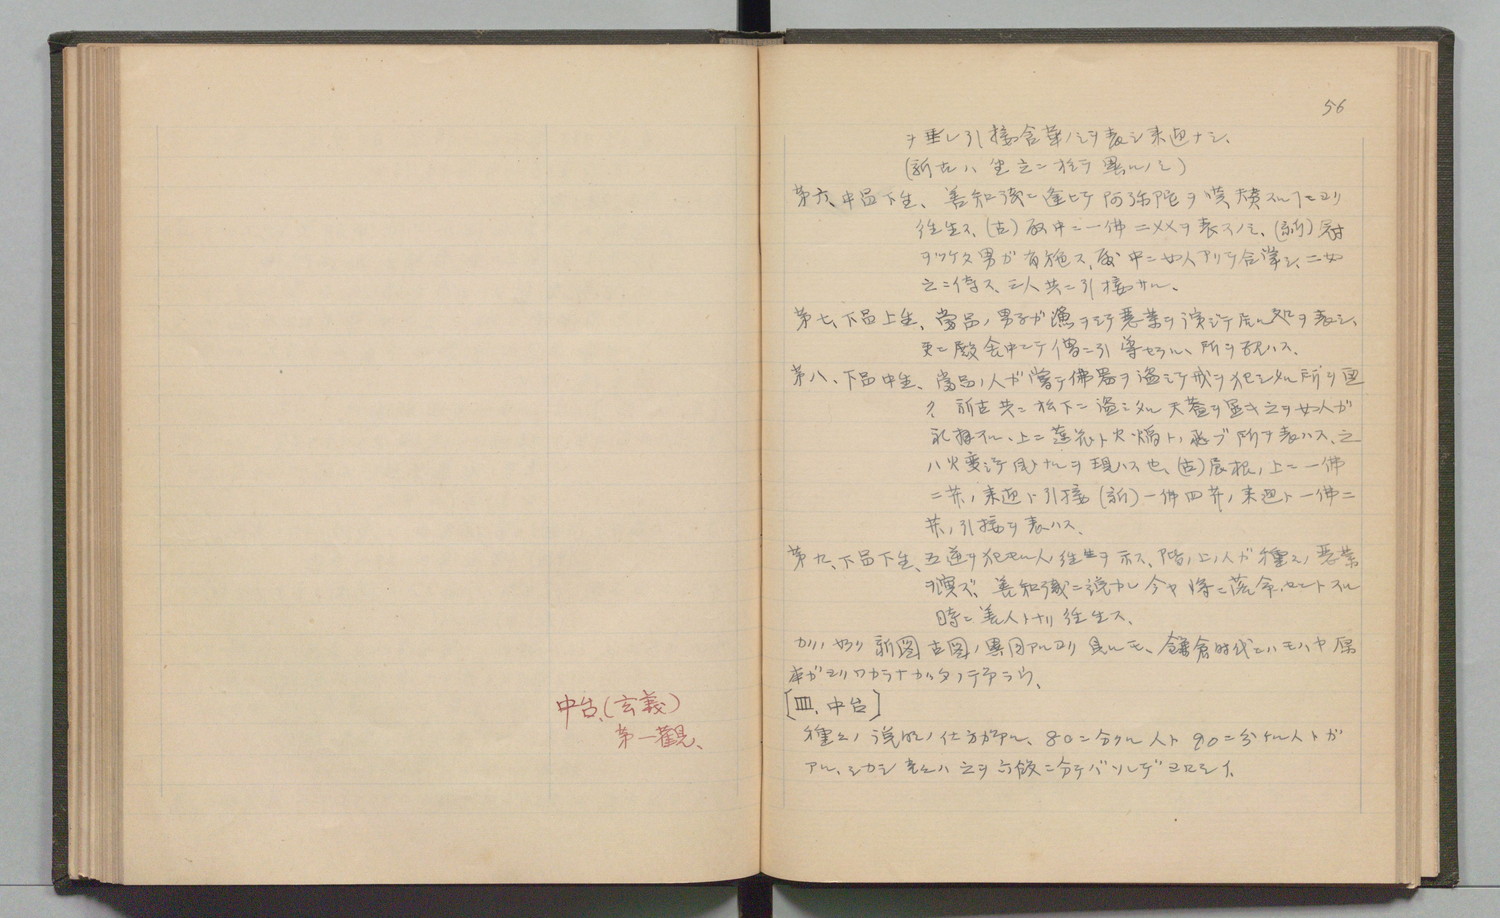 56
ヲ垂レ引接合掌ノミヲ表シ来迎ナシ、
(新古ハ坐立ニ於テ異ルノミ)
第六、中品下生、善知識ニ逢ヒテ阿弥陀ヲ讃嘆スルコトニヨリ
往生ス、(古)殿中ニ一佛ニ女ヲ表スノミ、(新)冠
ヲツケタ男ガ有徳ス、殿中ニ女人アリテ合掌シ、二女
之ニ侍ス、三人共ニ引接サル、
第七、下品上生、当品ノ男子ガ漁ヲシテ悪業ヲ演ジテ居ル処ヲ表シ、
更ニ殿舎中ニテ僧ニ引導セラル、所ヲ現ハス、
第八、下品中生、当品ノ人ガ嘗テ佛器ヲ盗ミテ戒ヲ犯シタル所ヲ画
ク 新古共ニ松下ニ盗ミタル天蓋ヲ置キ之ヲ女人ガ
礼拝スル、上ニ蓮花ト火焔ト、飛ブ所ヲ表ハス、之
ハ火変ジテ風トナルヲ現ハス也、(古)屋根ノ上ニ一佛
二菩ノ来迎ト引接(新)一佛四菩ノ来迎ト一佛二
菩ノ引接ヲ表ハス、
第九、下品下生、五逆ヲ犯セル人ノ往生ヲ示ス、階ノ上ノ人ガ種々ノ悪業
ヲ演ズ、善知識ニ説カレ今ヤ将ニ落命セントスル
時ニ善人トナリ往生ス、
カクノ如ク新図古図ノ異同アルヨリ見ルモ、鎌倉時代ニハモハヤ原
本ガヨクワカラナカッタノデアラウ、
[皿、中台]
種々ノ説明ノ仕方ガアル、80ニ分クル人ト90ニ分ケル人トガ
アル、シカシ先ヅハ之ヲ六段ニ分テバソレデヨロシイ、
中台、(玄義)
第一観、